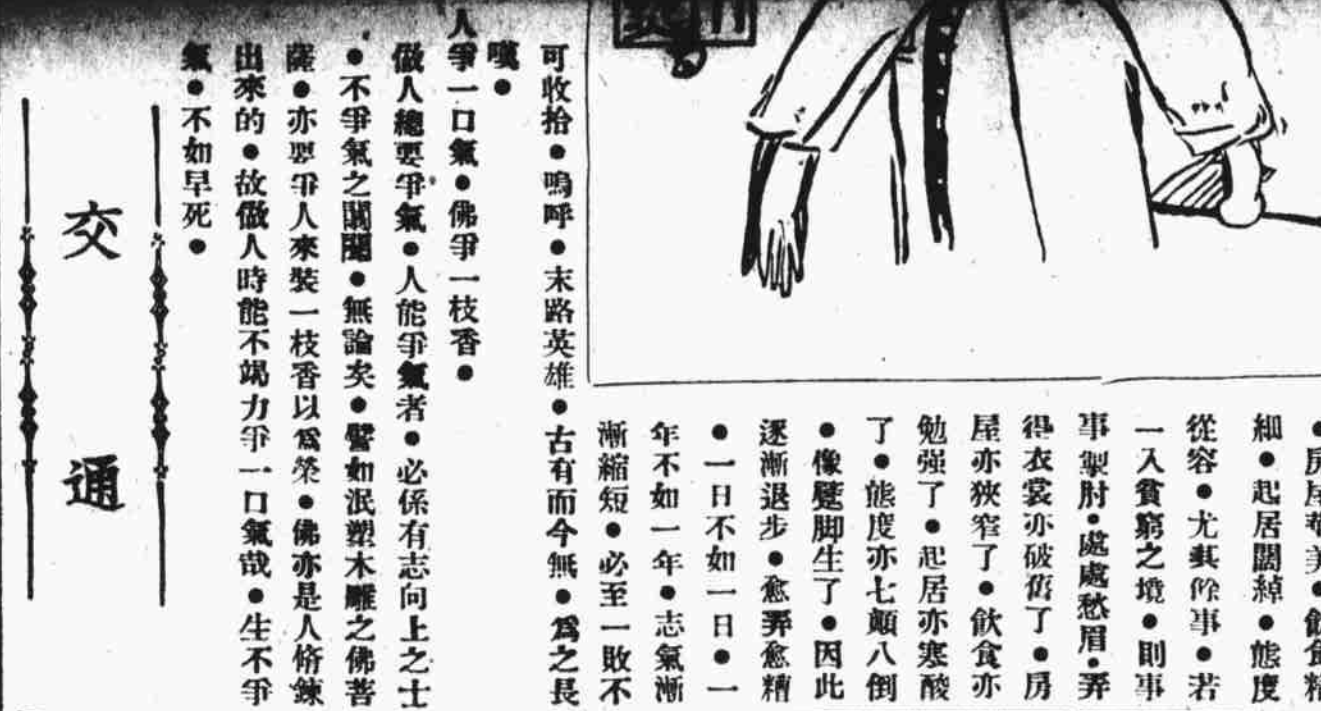 房屋華美●飲食精
細●起居闊綽●態度
從容●尤其餘事●若
一入貧窮之境●則事
事掣肘●處處愁眉●弄
得衣裳亦破舊了●房
屋亦狹窄了●飲食亦
勉强了●起居亦寒酸
了●態度亦七顛八倒
●像蹩脚生了●因此
逐漸退步●愈弄愈糟
●一日不如一日●一
年不如一年●志氣漸
漸縮短●必至一敗不
可收拾●嗚呼●末路英雄●古有而今無●爲之長
嘆●
人爭一口氣●佛爭一枝香●
做人總要爭氣●人能爭氣者●必係有志向上之士
●不爭氣之闒闒●無論矣●譬如泥塑木雕之佛菩
薩●亦要爭人來裝一枝香以爲榮●佛亦是人脩鍊
出來的●故做人時能不竭力爭一口氣哉●生不爭
氣●不如早死●
交通